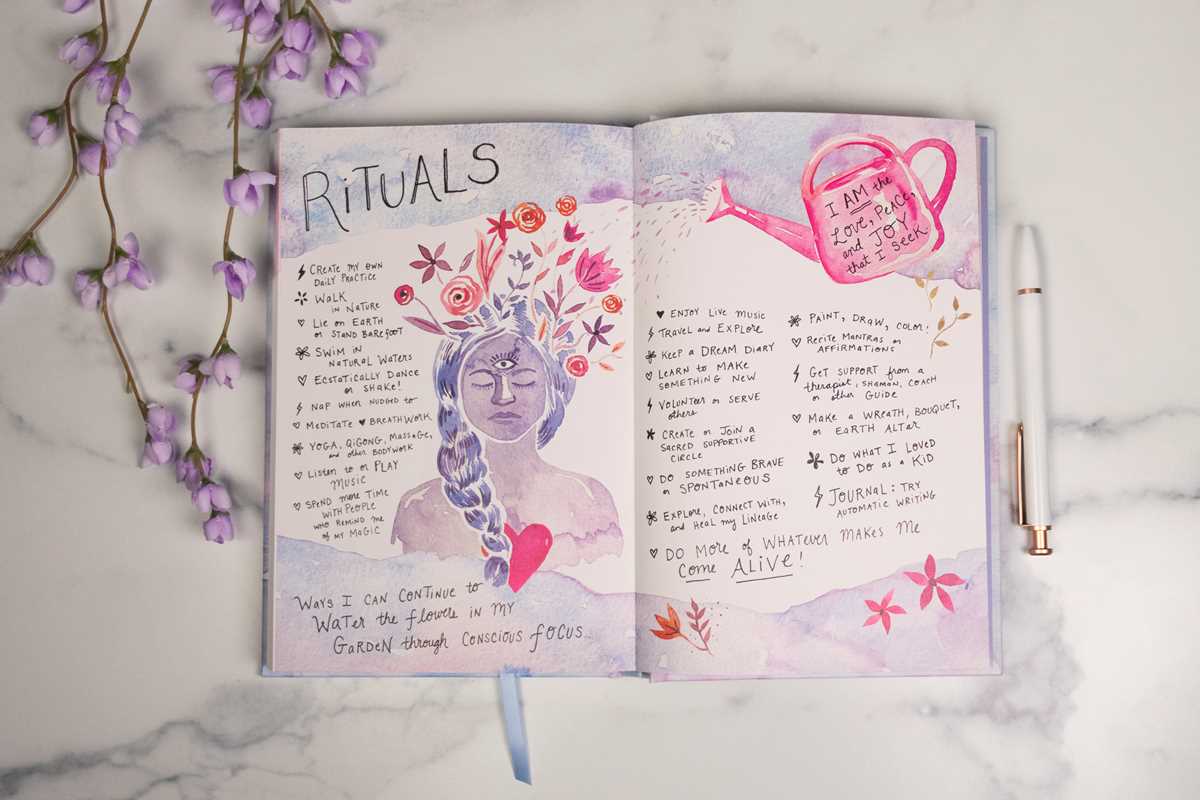 RiTUALS
CREATE MY OWN
DAILY PRACTICE
WALK
IN NATURE
Lie on EARTH
or STAND BAREFOOT
SWIM IN
NATURAL WATERS
ECSTATICALLY DANCE
or SHAKE!
NAP WHEN NUDGED to
MEDITATE ♥ BREATHWORK
YOGA, QIGONG, MASSAGE,
and other BODYWORK
LISTEN to or PLAY
MUSIC
SPEND MORE TIME
WITH PEOPLE
WHO REMIND ME
OF MY MAGIC
WAYS I CAN CONTINUE to
WATER the flOWERS IN MY
GARDEN through CONSCIOUS fOCUS
I AM the
LOVE, PEACE,
and JOY
that I SEEK
♥ ENJOY LIVE MUSIC
TRAVEL and EXPLORE
KEEP A DREAM DIARY
LEARN to MAKE
SOMETHING NEW
VOLUNTEER or SERVE
others
CREATE or JOIN A
SACRED SUPPORTIVE
CIRCLE
DO SOMETHING BRAVE
or SPONTANEOUS
EXPLORE, CONNECT WITH,
and HEAL my LINEAGE
PAINT, DRAW, COLOR!
RECITE MANTRAS or
AFFIRMATIONS
GET SUPPORT from a
therapist, SHAMAN, COACH
or other GUIDE
MAKE A WREATH, BOUQUET,
or EARTH ALTAR
DO WHAT I LOVED
to DO AS A KID
JOURNAL: TRY
AUTOMATIC WRITING
DO MORE of WHATEVER MAKES ME
COME ALIVE!